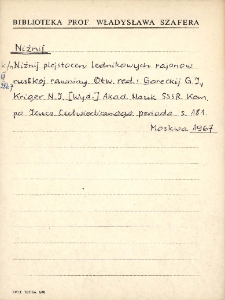 BIBLIOTEKA PROF WŁADYSŁAWA SZAFERA
Niżnij
Niżnij plejstocen lednikowych rajonow
russkoj rawniny. Otw. red.: Goreckij G.I.,
Kriger N.I. [Wyd.:] Akad. Nauk SSSR. Kom.
po Izucz. Czetwierticznogo perioda s. 181.
Moskwa 1967
1967